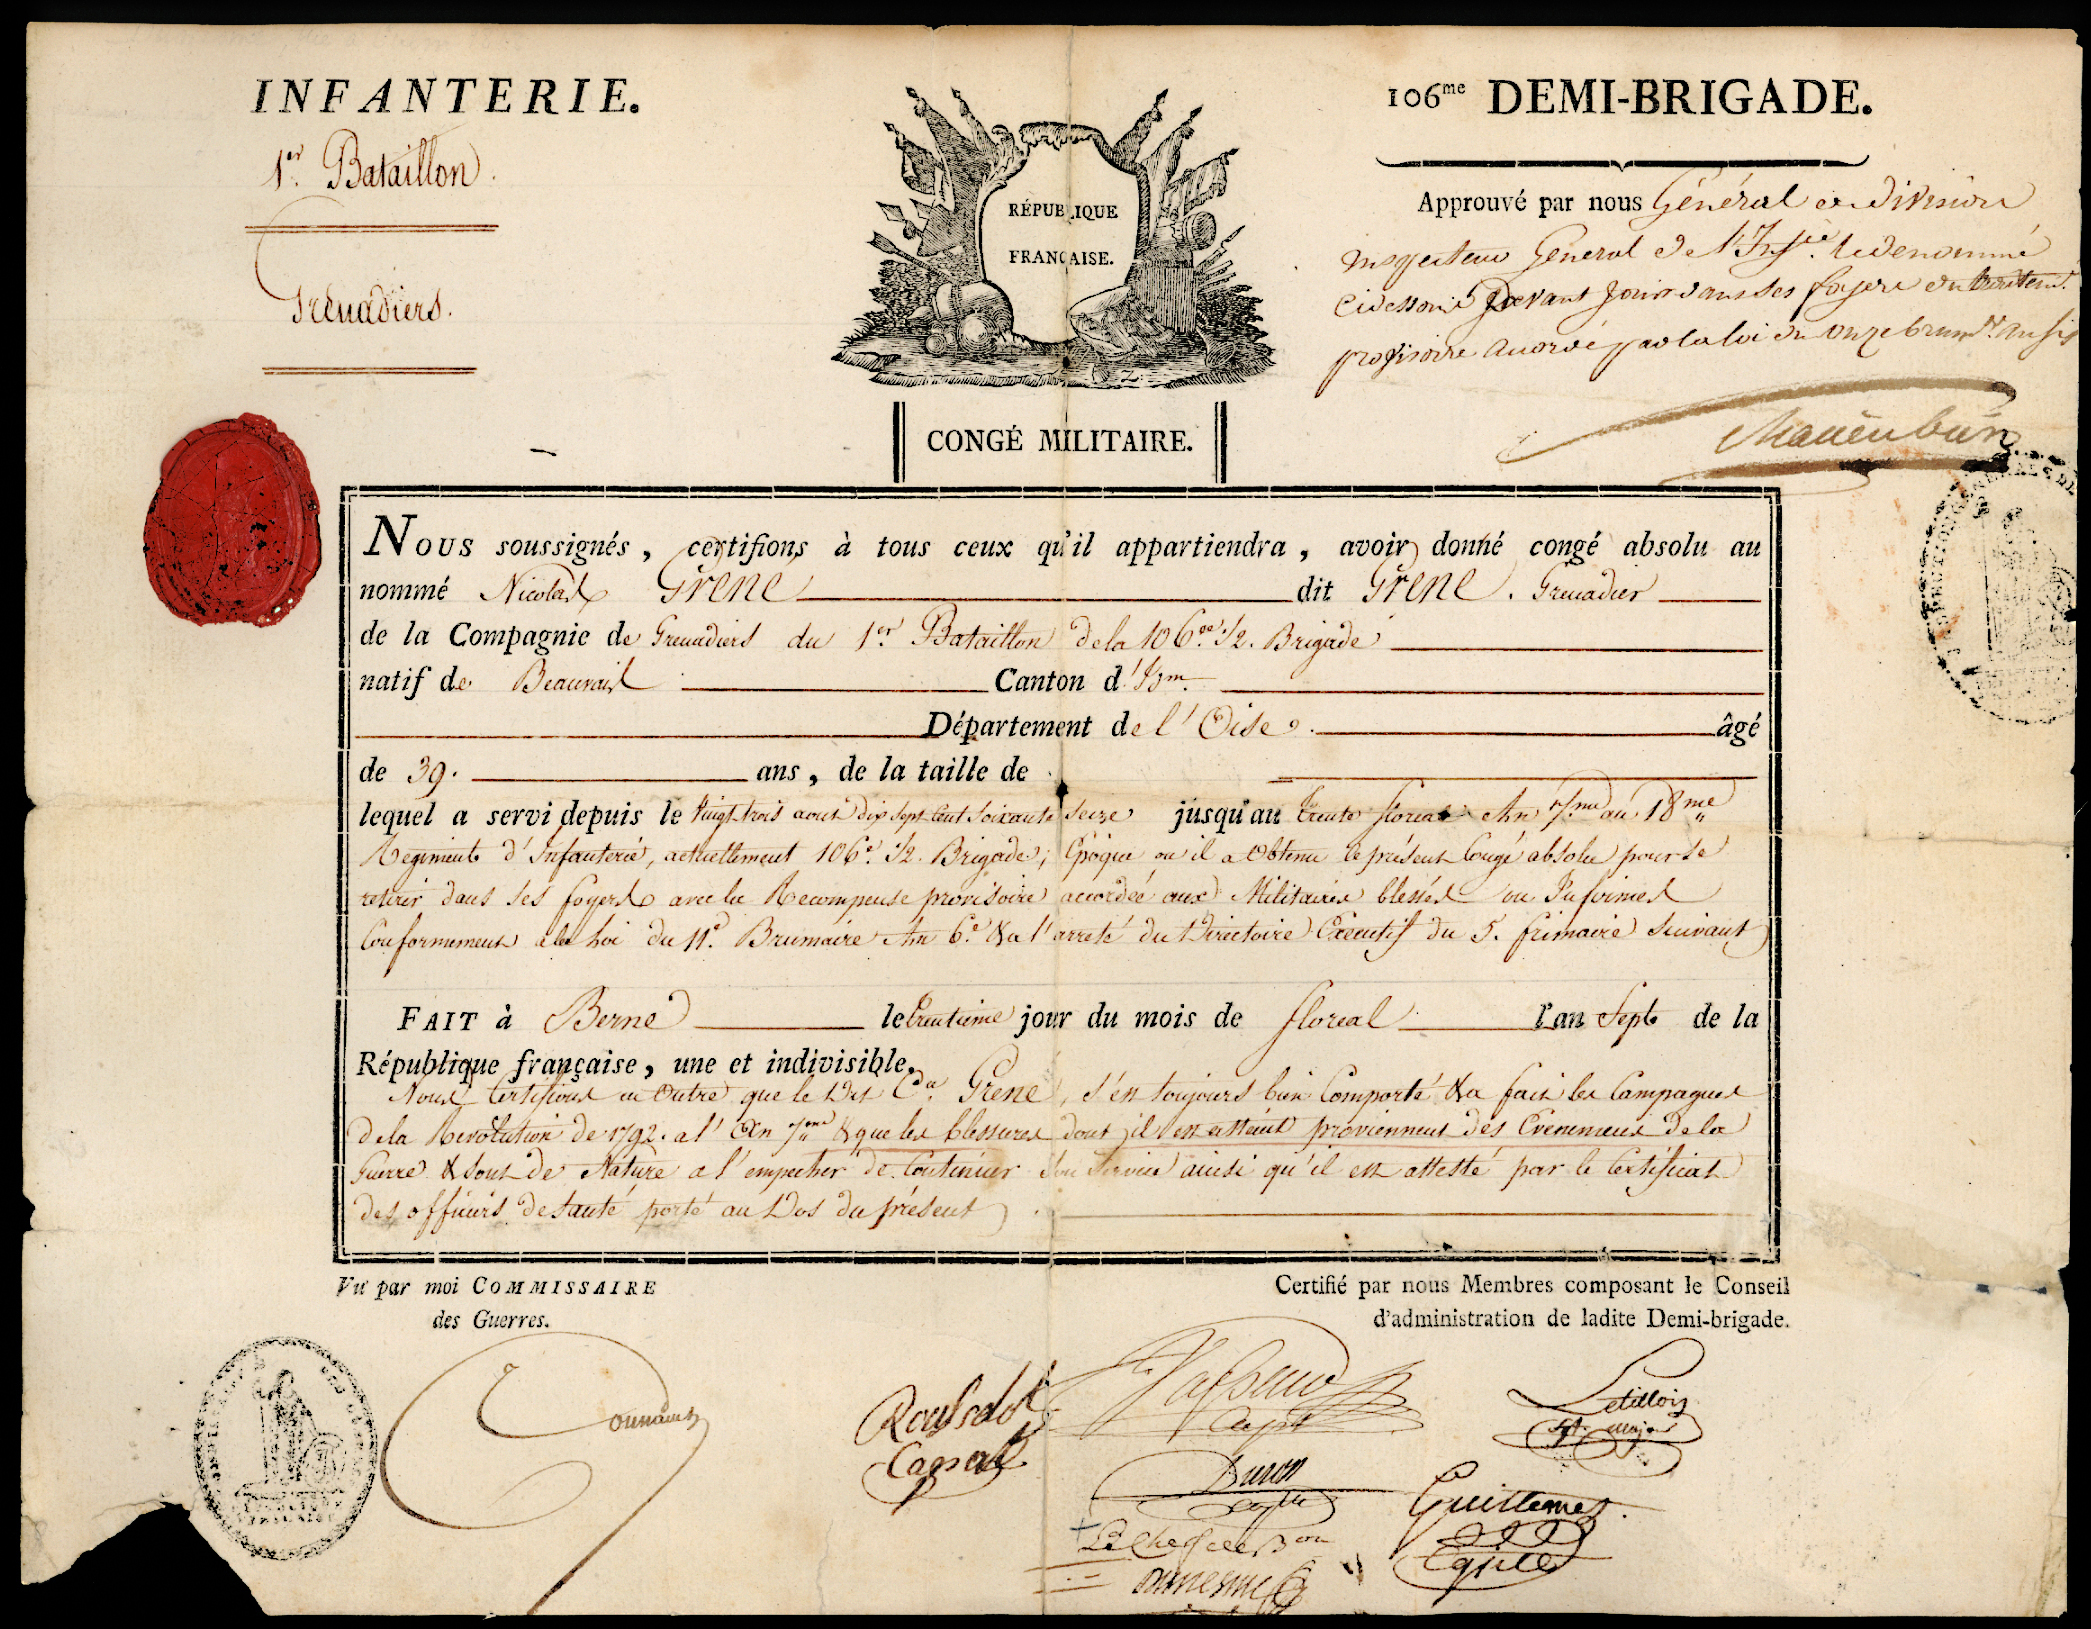 INFANTERIE.
1.er Bataillon.
Grenadiers.
RÉPUBLIQUE
FRANÇAISE.
CONGÉ MILITAIRE.
106me DEMI-BRIGADE.
Approuvé par nous Général de division
inspecteur Général de l'Inf.ie le denommé
cidessous devant jouir dans ses foyers du traitem.t
provisoire accordé par la loi du onze brum.re an six
Schauenburg
NOUS soussignés, certifions à tous ceux qu'il appartiendra, avoir donné congé absolu au
nommé Nicolas Grene dit Grene. Grenadier
de la Compagnie de Grenadiers du 1.er Bataillon de la 106.e 1/2. Brigade
natif de Beauvais Canton d'Idm.
Département de l'Oise. âgé
de 39. ans, de la taille de
lequel a servi depuis le vingt trois aout dix sept cent soixante seize jusqu'au trente floreal An 7.me au 18me
Regiment d'Infanterie, actuellement 106.e 1/2. Brigade; Epoque où il a obtenu le présent Congé absolu pour se
retirer dans ses foyers avec la Recompense provisoire accordée aux Militaires blessés ou Infirmes
Conformement à la Loi du 11.e Brumaire An 6.e & a l'arreté du Directoire Executif du 5. frimaire suivant
FAIT à Berne le trentieme jour du mois de floreal l'an Sept de la
République française, une et indivisible.
Nous Certifions en outre que le Dit C.en Grene, s'est toujours bien Comporté & a fait les Campagnes
de la Revolution de 1792. a l'An 7me & que les blessures dont il est atteint proviennent des Evenemens de la
Guerre & sont de Nature a l'empecher de Continuer son Service ainsi qu'il est attesté par le Certificat
des officiers de santé porté au Dos du présent
Vu par moi COMMISSAIRE
des Guerres.
Certifié par nous Membres composant le Conseil
d'administration de ladite Demi-brigade.
Letillois
Capt
Duron
Guillemet